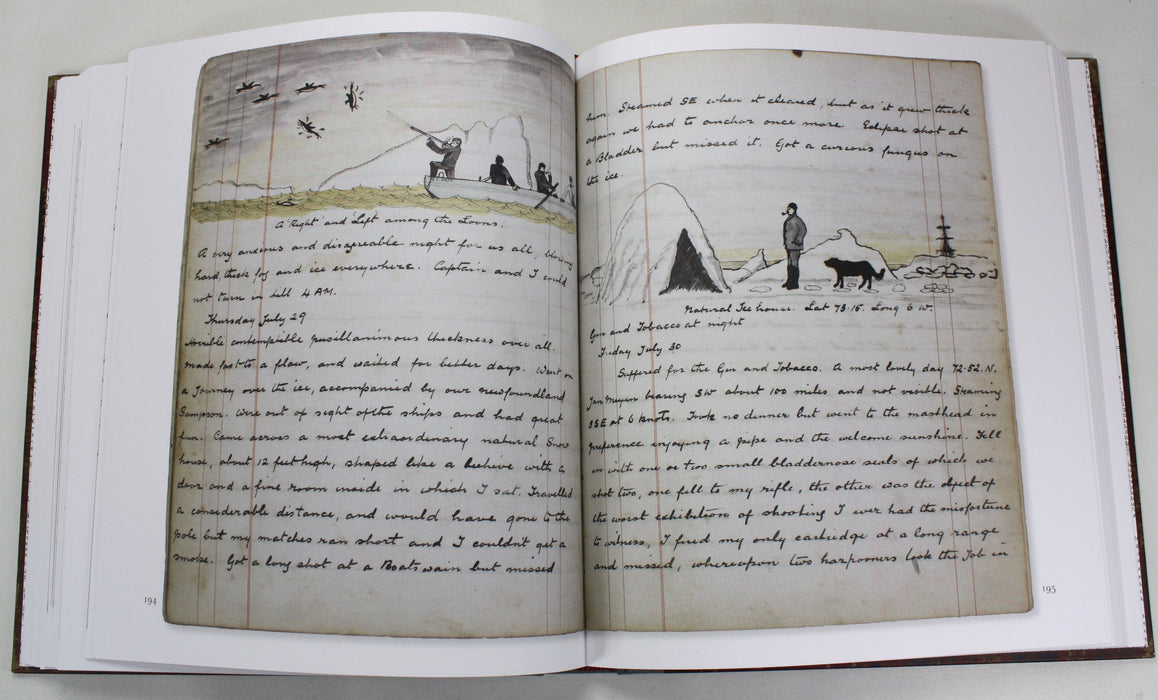 A "Right" and "Left" among the Loons.
A very anxious and disagreeable night for us all, blowing
hard, thick fog and ice everywhere. Captain and I could
not turn in till 4 AM.
Thursday July 29
Horrible contemptible pusillanimous thickness over all.
made fast to a flaw, and waited for better days. Went on
a Journey over the ice, accompanied by our newfoundland
Sampson. Were out of sight of the ships and had great
fun. Came across a most extraordinary natural Snow
house, about 12 feet high, shaped like a beehive with a
door and a fine room inside in which I sat. Travelled
a considerable distance, and would have gone to the
pole but my matches ran short and I couldn't get a
smoke. Got a long shot at a Boatswain but missed
194
him. Steamed SE when it cleared, but as it grew thick
again we had to anchor once more. Eclipse shot at
a Bladder but missed it. Got a curious fungus on
the ice
Natural Ice house. Lat 73·15. Long 6 W.
Gin and Tobacco at night
Friday July 30
Suffered for the Gin and Tobacco. A most lovely day 72·52. N.
Jan Meyen bearing SW about 100 miles and not visible. Steaming
SSE at 6 knots. Took no dinner but went to the masthead in
preference enjoying a pipe and the welcome sunshine. Fell
in with one or two small bladdernose seals of which we
shot two, one fell to my rifle, the other was the object of
the worst exhibition of shooting I ever had the misfortune
to witness, I fired my only cartridge at a long range
and missed, whereupon two harpooners took the Job in
195